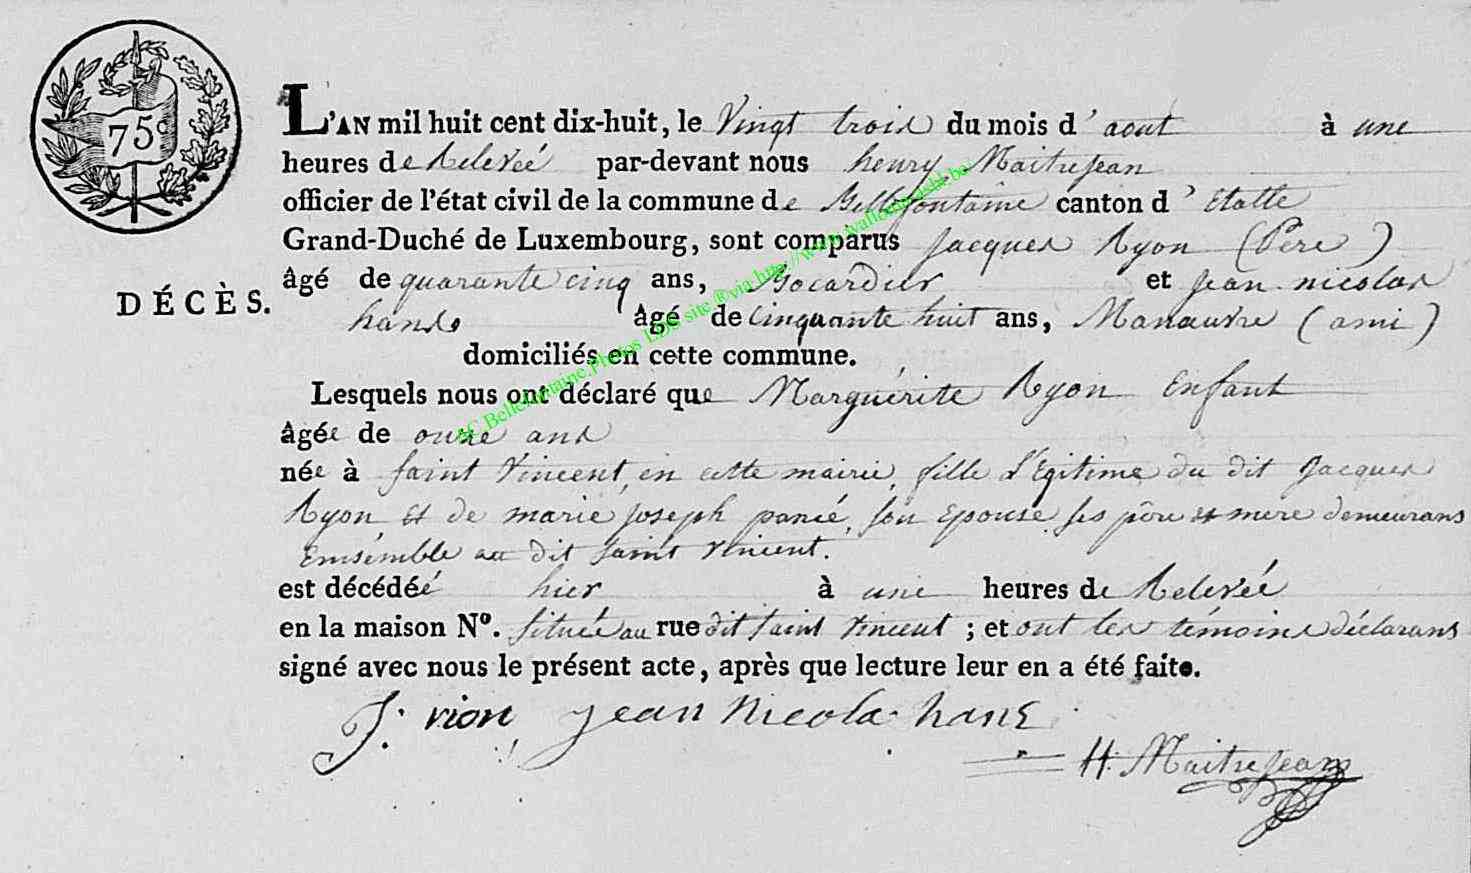 75c
L'AN mil huit cent dix-huit, le Vingt trois du mois d'aout à une
heures de Relevée par-devant nous henry Maitrejean
officier de l'état civil de la commune de Bellefontaine canton d'Etalle
Grand-Duché de Luxembourg, sont comparus Jacques Ryon (Pere)
âgé de quarante cinq ans, Bocardier et jean nicolas
DÉCÈS.
hans âgé de Cinquante huit ans, Manœuvre (ami)
domiciliés en cette commune.
Lesquels nous ont déclaré que Marguérite Ryon Enfant
âgée de onze ans
née à saint Vincent, en cette mairie, fille L'Egitime du dit Jacques
Ryon et de marie joseph pancé, son Epouse ses père et mere demeurans
Emsémble au dit saint vincent.
est décédéé hier à une heures de Relevée
en la maison Nº. située au rue dit saint vincent ; et ont les témoins déclarans
signé avec nous le présent acte, après que lecture leur en a été faite.
J. rion jean Nicola hans
H. Maitrejean